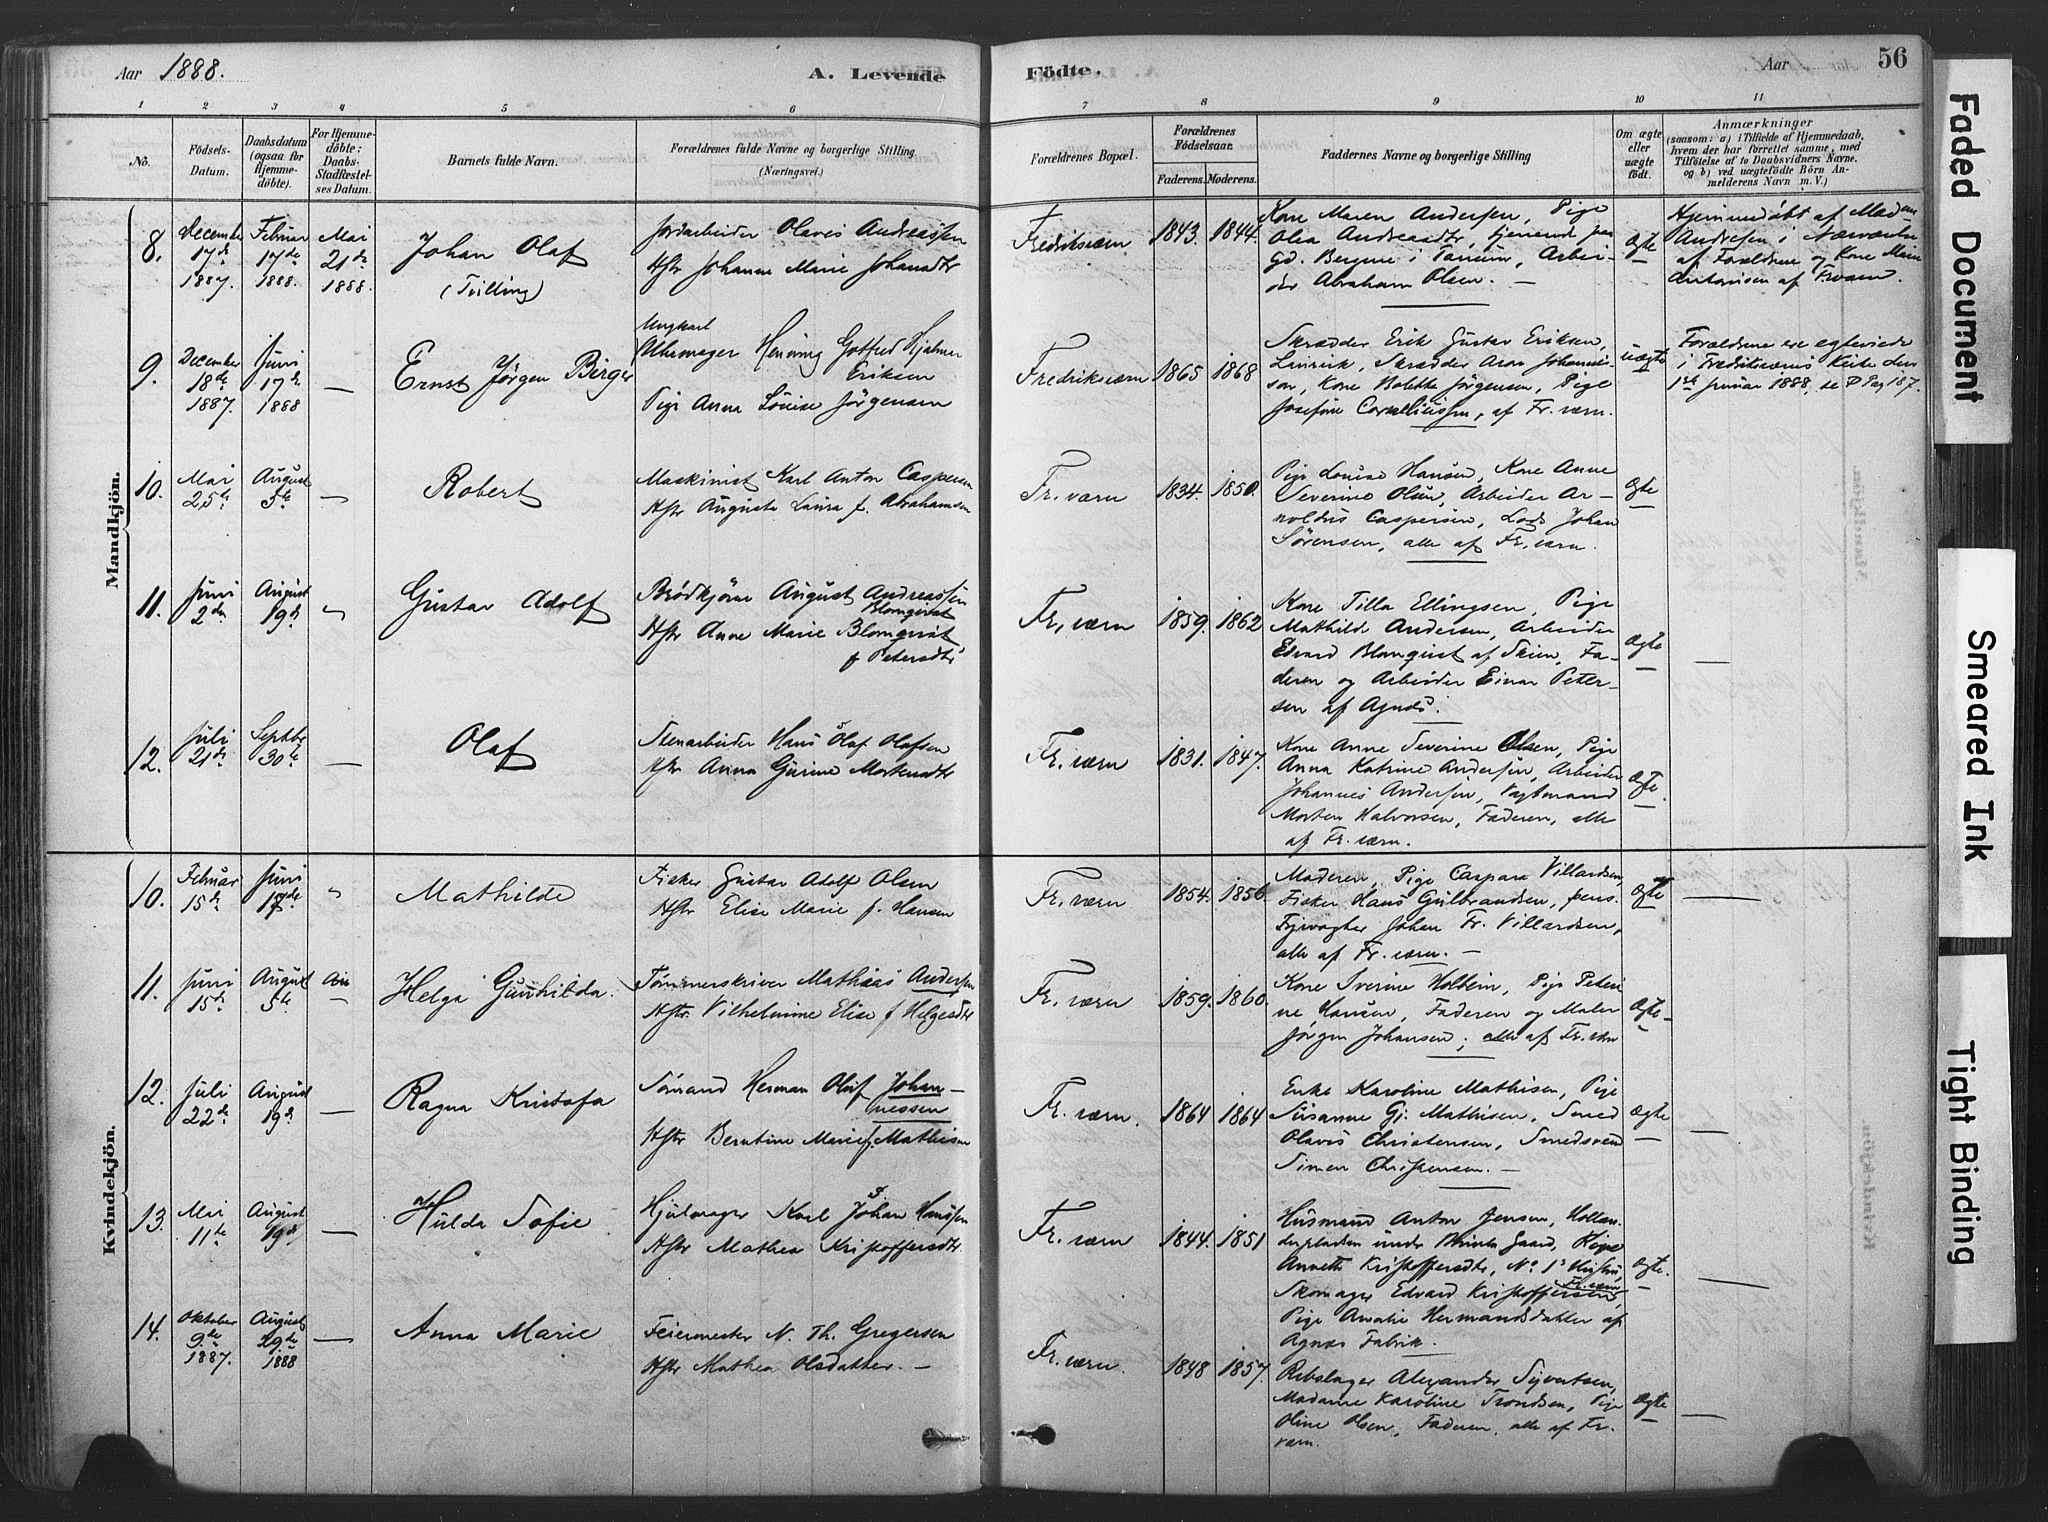 Aar 1888.
A. Levende
Födte.
Aar
56
1 2 3 4 5 6 7 8 9 10 11
No.
Födsels-
Datum.
Daabsdatum
(ogsaa for
Hjemme-
döbte).
For Hjemme-
döbte:
Daabs-
Stadfæstel-
ses Datum.
Barnets fulde Navn.
Forældrenes fulde Navne og borgerlige Stilling
(Næringsvei.)
Forældrenes Bopæl.
Forældrenes
Fødselsaar.
Faderens. Moderens.
Faddernes Navne og borgerlige Stilling
Om ægte
eller
uægte
födt.
Anmærkninger
(saasom: a) i Tilfælde af Hjemmedaab,
hvem der har forrettet samme, med
Tilföielse af to Daabsvidners Navne.
og b) ved uægtefödte Börn An-
melderens Navn m. V.)
Mandkjön.
8.
December
17de
1887.
Februar
17de
1888.
Mai
21de
1888.
Johan Olaf
(Tvilling)
Jordarbeider Olavis Andreassen
Hstr Johanne Marie Johansdtr
Fredriksværn
1843. 1844.
Kone Maren Andersen, Pige
Olea Andreasdtr, tjenende paa
Gd. Bergene i Tanum, Arbei-
der Abraham Olsen. —
Ægte
Hjemmedöbt af Madam
Andresen i Nærværelse
af Forældrene og Kone Marie
Antonisen af Frværn.
9.
December
18de
1887.
Juni
17de
1888
—
Ernst Jörgen Birger
Ungkarl
Uhrmager Henning Gotfred Hjalmar
Eriksen
Pige Anna Lovise Jörgensen
Fredriksværn
1865 1868
Skrædder Erik Gustav Eriksen,
Skrædder Aron Johannes-
sen, Kone Bolette Jörgensen, Pige
Josefine Corneliussen, af Fr. værn.
uægte
Forældrene ere egteviede
i Fredriksværns Kirke den
1ste Januar 1888, se P Pag 187.
10.
Mai
25de
August
5te
—
Robert
Maskinist Karl Anton Caspersen
Hstr Augusta Laura f. Abrahamsen
Fr. værn
1834. 1850.
Pige Louise Hansen, Kone Anne
Severine Olsen, Arbeider Ar-
noldus Caspersen, Lods Johan
Sörensen, alle af Fr. værn.
Ægte
11.
Juni
2den
August
19de
Gustav Adolf
Brödkjörer August Andreassen
Blomqvist
Hstr Anne Marie Blomqvist
f. Petersdtr
Fr. værn
1859. 1862
Kone Tilla Ellingsen, Pige
Mathilde Andersen, Arbeider
Edvard Blomquist af Skien, Fa-
deren og Arbeider Einar Peter-
sen af Agnes.
Ægte
—
12.
Juli
21de
Septbr
30te
—
Olaf
Stenarbeider Hans Olaf Olafsen
Hstr Anna Gurine Mortensdtr
Fr. værn
1831. 1847.
Kone Anne Severine Olsen, Pige
Anna Katrine Andersen, Arbeider
Johannes Andersen, Vagtmand
Morten Halvorsen, Faderen, alle
af Fr. værn.
Ægte.
Kvindekjön.
10.
Februar
15de
Juni
17de
Mathilde
Fisker Gustav Adolf Olsen
Hstr Elise Marie f. Hansen
Fr. værn
1854. 1856.
Moderen, Pige Caspara Villardsen,
Fisker Hans Gulbrandsen, pens.
Fyrvogter Johan Fr. Villardsen,
alle af Fr. værn. —
Ægte
—
11.
Juni
15de
August
5te
—
Helga Gunhilda.
Tömmerskriver Mathias Andersen
Hstr. Vilhelmine Elise f Helgesdtr
Fr. værn
1859. 1860.
Kone Iverine Holbein, Pige Petri-
ne Hansen, Faderen og Maler
Jörgen Johansen; alle af Fr. værn
Ægte.
12.
Juli
22de
August
19de
—
Ragna Kristofa
Sömand Herman Oluf Johan-
nessen
Hstr Berntine Marie f. Mathisen
Fr. værn.
1864 1864
Enke Karoline Mathisen, Pige
Susanne Gj. Mathisen, Smed
Olavis Christensen, Smedsvend
Simen Christensen. —
Ægte
—
13.
Mai
11te
August
19de
—
Hulda Sofie
Hjulmager Karl Johan Hansen
Hstr Mathea Kristoffersdtr.
Fr. værn
1844. 1851
Husmand Anton Jensen, Hollen-
derpladsen under Gaard, Kone
Annette Kristoffersdtr,
Fr. værn
Skomager Edvard Kristoffersen,
Pige Amalie Hermandsdatter af
Agnes Fabrik.
Ægte.
—
14.
Oktober
9de
1887.
August
29de
1888
—
Anna Marie
Feiermester N. Th. Gregersen
Hstr Mathea Olsdatter. —
Fr. værn.
1848 1857.
Rebslager Alexander Syvertsen,
Madame Karoline Trondsen, Pige
Oline Olsen, Faderen, alle af Fr.
værn.
Ægte
—
Faded Document
Smeared Ink
Tight Binding